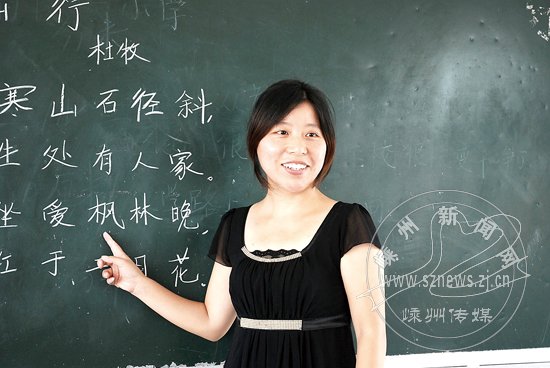 山行
杜牧
寒山石径斜,
生处有人家。
坐爱枫林晚,
红于二月花。
嵊州新闻网
www.sznews.zj.cn
嵊州传媒